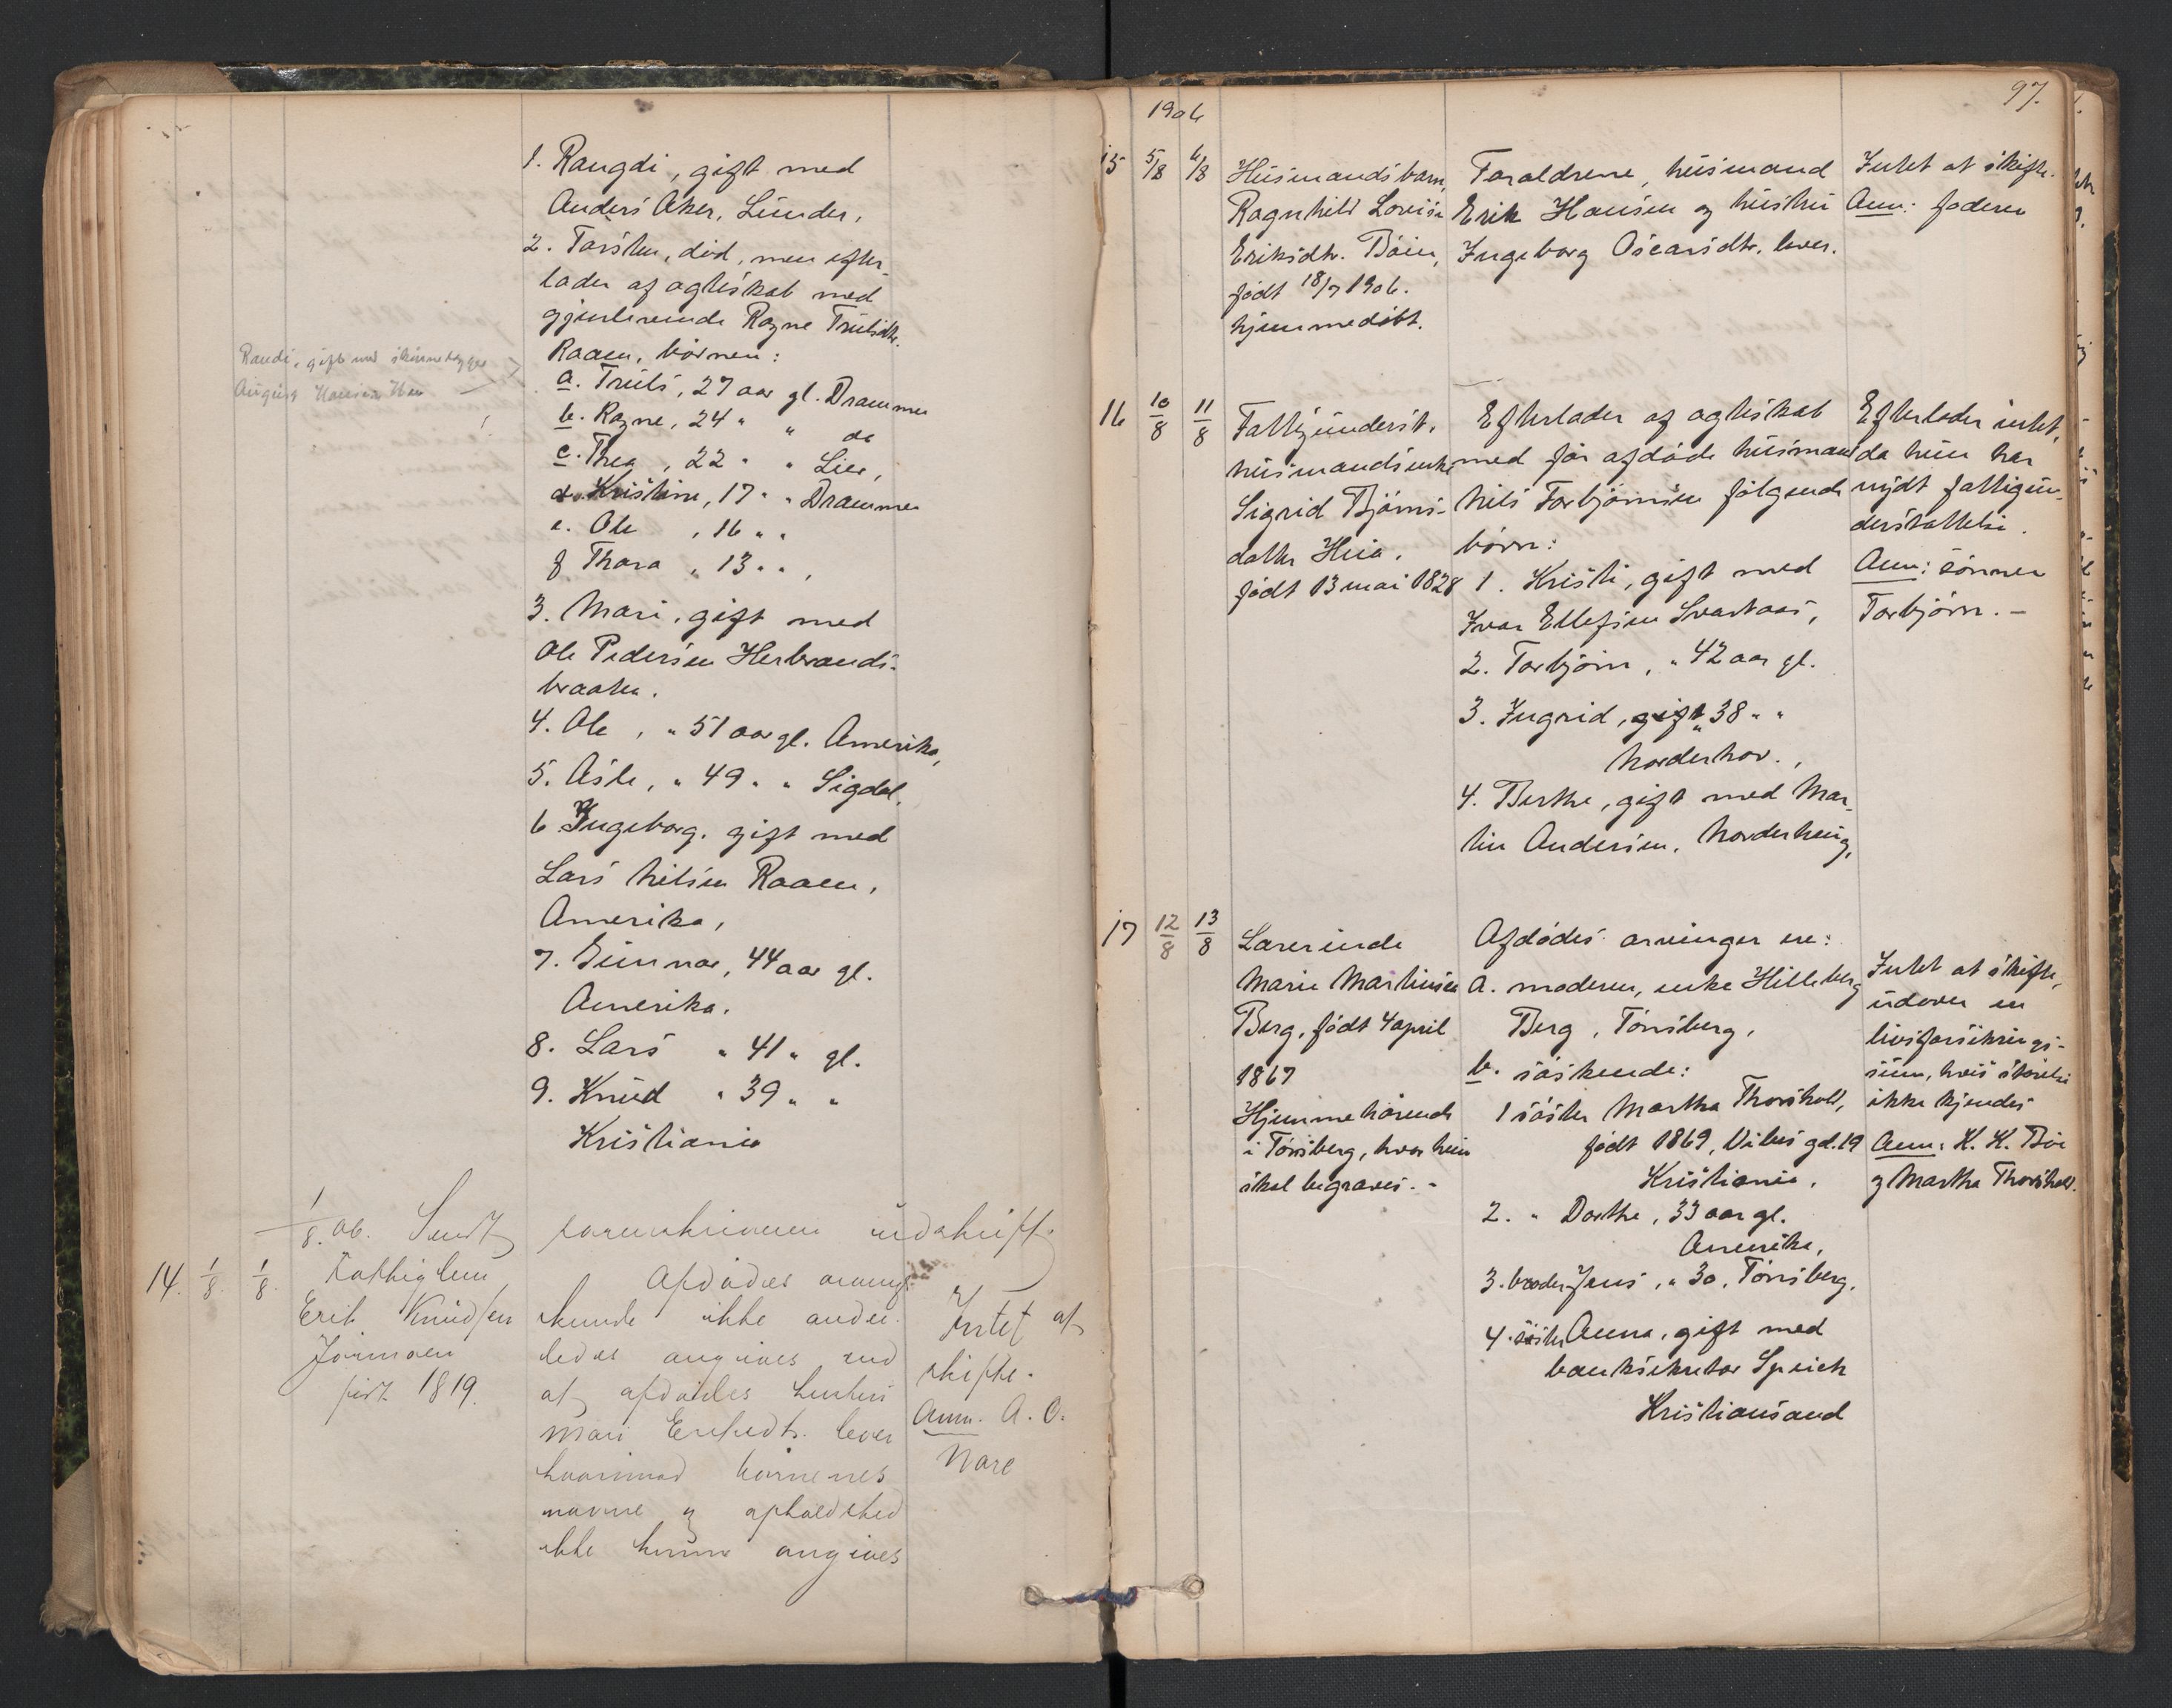 1. Rangdi, gift med
Anders Aker, Lunder,
2. Torsten, død, men efter-
lader af ægteskab med
gjenlevende Ragne Trulsdtr.
Raaen, børnen:
Randi, gift med
August Hansen
a. Truls, 27 aar gl. Drammen
b. Ragne, 24 " " do
c. Thea, 22 " " Lier,
d. Kristine, 17 " " Drammen
e. Ole, 16 " "
f Thora, 13 " ",
3. Mari, gift med
Ole Pedersen Herbrands-
braaten.
4. Ole, " 51 aar gl. Amerika,
5. Asle, " 49 " " Sigdal,
6 Ingeborg. gift med
Lars Nilsen Raaen,
Amerika,
7. Gunnar, 44 aar gl.
Amerika.
8. Lars " 41 " gl.
9. Knud " 39 " "
Kristiania
1/8. 06. Sendt sorenskriveren udskrift.
14. 1/8. 1/8. Fattiglem
Erik Knudsen
født 1819.
Afdødes arving
kunde ikke ander-
ledes angives end
at afdødes hustru
Mari Eriksdtr. lever
hvorimod børnenes
navne og opholdsted
ikke kunne angives
Intet at
skifte.
Anm. A. O.
Nare
97.
1906
15 5/8 6/8 Husmandsbarn,
Ragnhild Lovise
Eriksdtr. Bøen,
født 18/7 1906.
hjemmedøbt.
Forældrene, husmand
Erik Hansen og hustru
Ingeborg Oscarsdtr. lever.
Intet at skifte.
Anm: faderen
16 10/8 11/8 Fattigunderst.
husmandsenke
Sigrid Bjørns-
datter Hiia.
født 13 mai 1828
Efterlader af ægteskab
med før afdøde husmand
Nils Torbjørnsen følgende
børn:
1. Kristi, gift med
Ivar Ellefsen Svartaas,
2. Torbjørn, " 42 aar gl.
3. Ingrid, gift " 38 " "
Norderhov.,
4. Berthe, gift med Mar-
tin Andersen, Norderhaug,
Efterlader intet,
da hun har
nydt fattigun-
derstøttelse.
Anm: sønnen
Torbjørn. -
17 12/8 13/8 Lærerinde
Marie Martinsen
Berg, født 4 april
1867
Hjemmehørende
i Tønsberg, hvor hun
skal begraves. -
Afdødes arvinger ere:
a. moderen, enke Hilleberg
Berg, Tønsberg,
b. søskende:
1 søster Martha Thorshold,
født 1869, Vibes gd. 19
Kristiania.
2. " Dorthe, 33 aar gl.
Amerika,
3. broder Jens, " 30, Tønsberg,
4. søster Anna, gift med
banksekretær Speich
Kristiansand
Intet at skifte,
udover en
livsforsikrings-
sum, hvis størrelse
ikke kjendes
Anm: K. K. Bøe
og Martha Thorshold.